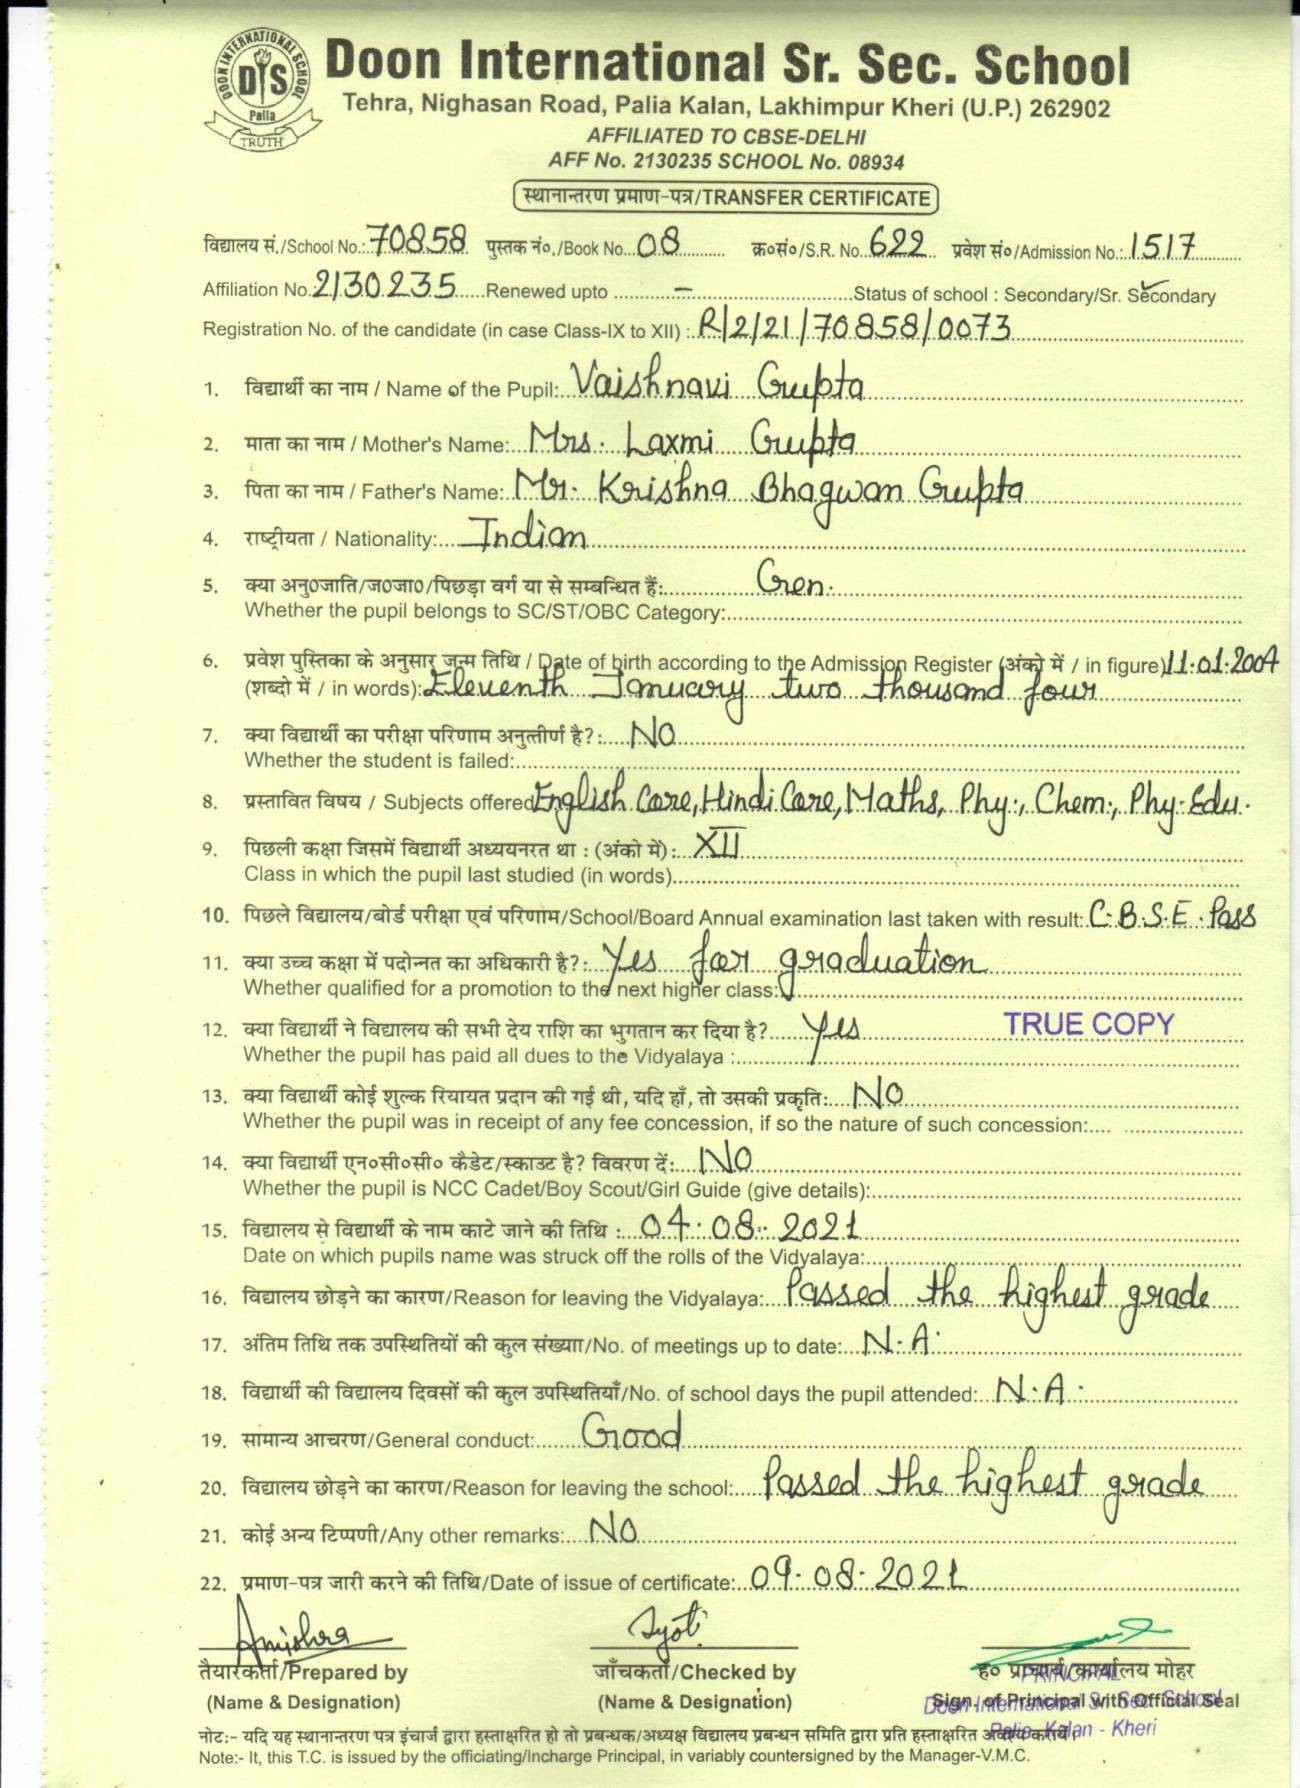 DOON INTERNATIONAL SCHOOL
DIS
Palia
TRUTH
Doon International Sr. Sec. School
Tehra, Nighasan Road, Palia Kalan, Lakhimpur Kheri (U.P.) 262902
AFFILIATED TO CBSE-DELHI
AFF No. 2130235 SCHOOL No. 08934
स्थानान्तरण प्रमाण-पत्र/TRANSFER CERTIFICATE
विद्यालय सं./School No.: 70858 पुस्तक नं०./Book No. 08 क्र०सं०/S.R. No. 622 प्रवेश सं०/Admission No.: 1517
Affiliation No. 2130235 Renewed upto – Status of school : Secondary/Sr. Secondary
Registration No. of the candidate (in case Class-IX to XII) : R/2/21/70858/0073
1. विद्यार्थी का नाम / Name of the Pupil: Vaishnavi Gupta
2. माता का नाम / Mother's Name: Mrs. Laxmi Gupta
3. पिता का नाम / Father's Name: Mr. Krishna Bhagwan Gupta
4. राष्ट्रीयता / Nationality: Indian
5. क्या अनु0जाति/ज0जा0/पिछड़ा वर्ग या से सम्बन्धित हैं: Gen.
Whether the pupil belongs to SC/ST/OBC Category:
6. प्रवेश पुस्तिका के अनुसार जन्म तिथि / Date of birth according to the Admission Register (अंको में / in figure) 11.01.2004
(शब्दो में / in words): Eleventh January two thousand four
7. क्या विद्यार्थी का परीक्षा परिणाम अनुत्तीर्ण है?: NO
Whether the student is failed:
8. प्रस्तावित विषय / Subjects offered English Core, Hindi Core, Maths, Phy., Chem., Phy. Edu.
9. पिछली कक्षा जिसमें विद्यार्थी अध्ययनरत था : (अंको में): XII
Class in which the pupil last studied (in words)
10. पिछले विद्यालय/बोर्ड परीक्षा एवं परिणाम/School/Board Annual examination last taken with result: C.B.S.E. Pass
11. क्या उच्च कक्षा में पदोन्नत का अधिकारी है?: Yes for graduation
Whether qualified for a promotion to the next higher class:
12. क्या विद्यार्थी ने विद्यालय की सभी देय राशि का भुगतान कर दिया है? Yes TRUE COPY
Whether the pupil has paid all dues to the Vidyalaya :
13. क्या विद्यार्थी कोई शुल्क रियायत प्रदान की गई थी, यदि हाँ, तो उसकी प्रकृति: NO
Whether the pupil was in receipt of any fee concession, if so the nature of such concession:
14. क्या विद्यार्थी एन०सी०सी० कैडेट/स्काउट है? विवरण दें: NO
Whether the pupil is NCC Cadet/Boy Scout/Girl Guide (give details):
15. विद्यालय से विद्यार्थी के नाम काटे जाने की तिथि : 04.08.2021
Date on which pupils name was struck off the rolls of the Vidyalaya:
16. विद्यालय छोड़ने का कारण/Reason for leaving the Vidyalaya: Passed the highest grade
17. अंतिम तिथि तक उपस्थितियों की कुल संख्या/No. of meetings up to date: N.A.
18. विद्यार्थी की विद्यालय दिवसों की कुल उपस्थितियाँ/No. of school days the pupil attended: N.A.
19. सामान्य आचरण/General conduct: Good
20. विद्यालय छोड़ने का कारण/Reason for leaving the school: Passed the highest grade
21. कोई अन्य टिप्पणी/Any other remarks: NO
22. प्रमाण-पत्र जारी करने की तिथि/Date of issue of certificate: 09.08.2021
Amishra Jyoti
तैयारकर्ता/Prepared by जाँचकर्ता/Checked by ह० प्राचार्य/कार्यालय मोहर
PRINCIPAL
(Name & Designation) (Name & Designation) Sign. of Principal with Official Seal
Doon International Sr. Sec. School
Palia Kalan - Kheri
नोट:- यदि यह स्थानान्तरण पत्र इंचार्ज द्वारा हस्ताक्षरित हो तो प्रबन्धक/अध्यक्ष विद्यालय प्रबन्धन समिति द्वारा प्रति हस्ताक्षरित अवश्य करायें।
Note:- It, this T.C. is issued by the officiating/Incharge Principal, in variably countersigned by the Manager-V.M.C.